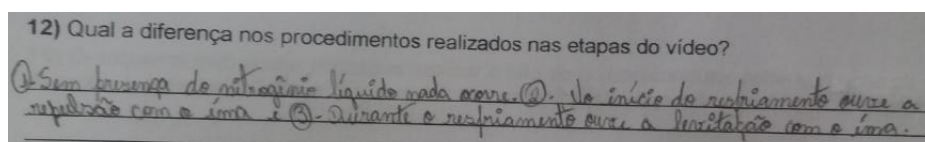 12) Qual a diferença nos procedimentos realizados nas etapas do vídeo?
①- Sem presença do nitrogênio líquido nada ocorre. ②. No início do resfriamento ouvre a
repulsão com o ímã e ③- Durante o resfriamento ouvre a levitação com o ímã.